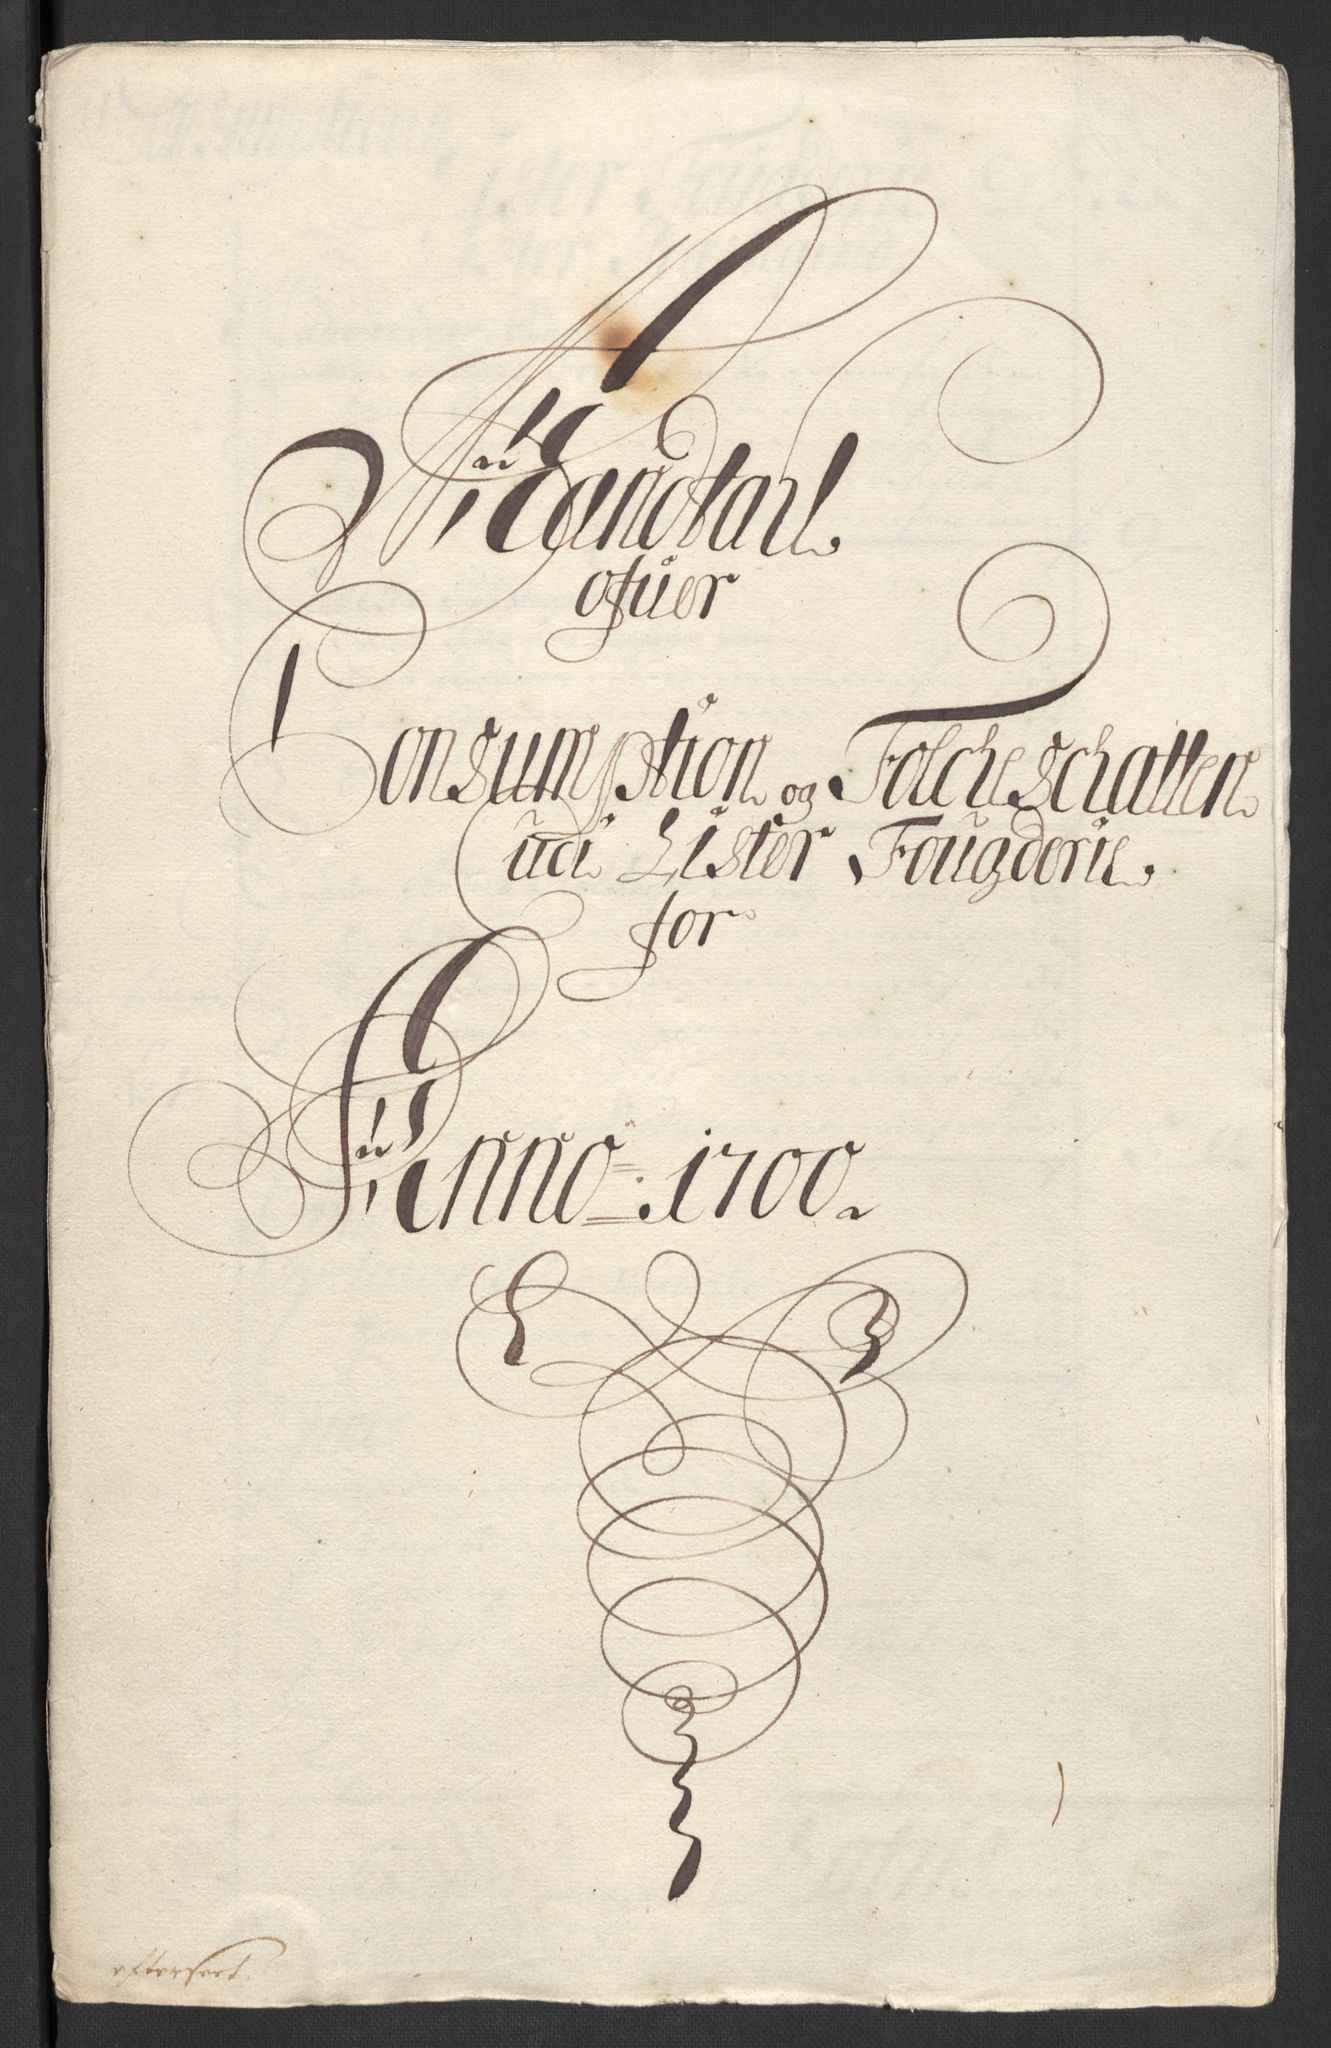 Mandtall
ofuer
Consumption og Folcheschatten
udi Lister Fougderie
for
Anno 1700
efterseet